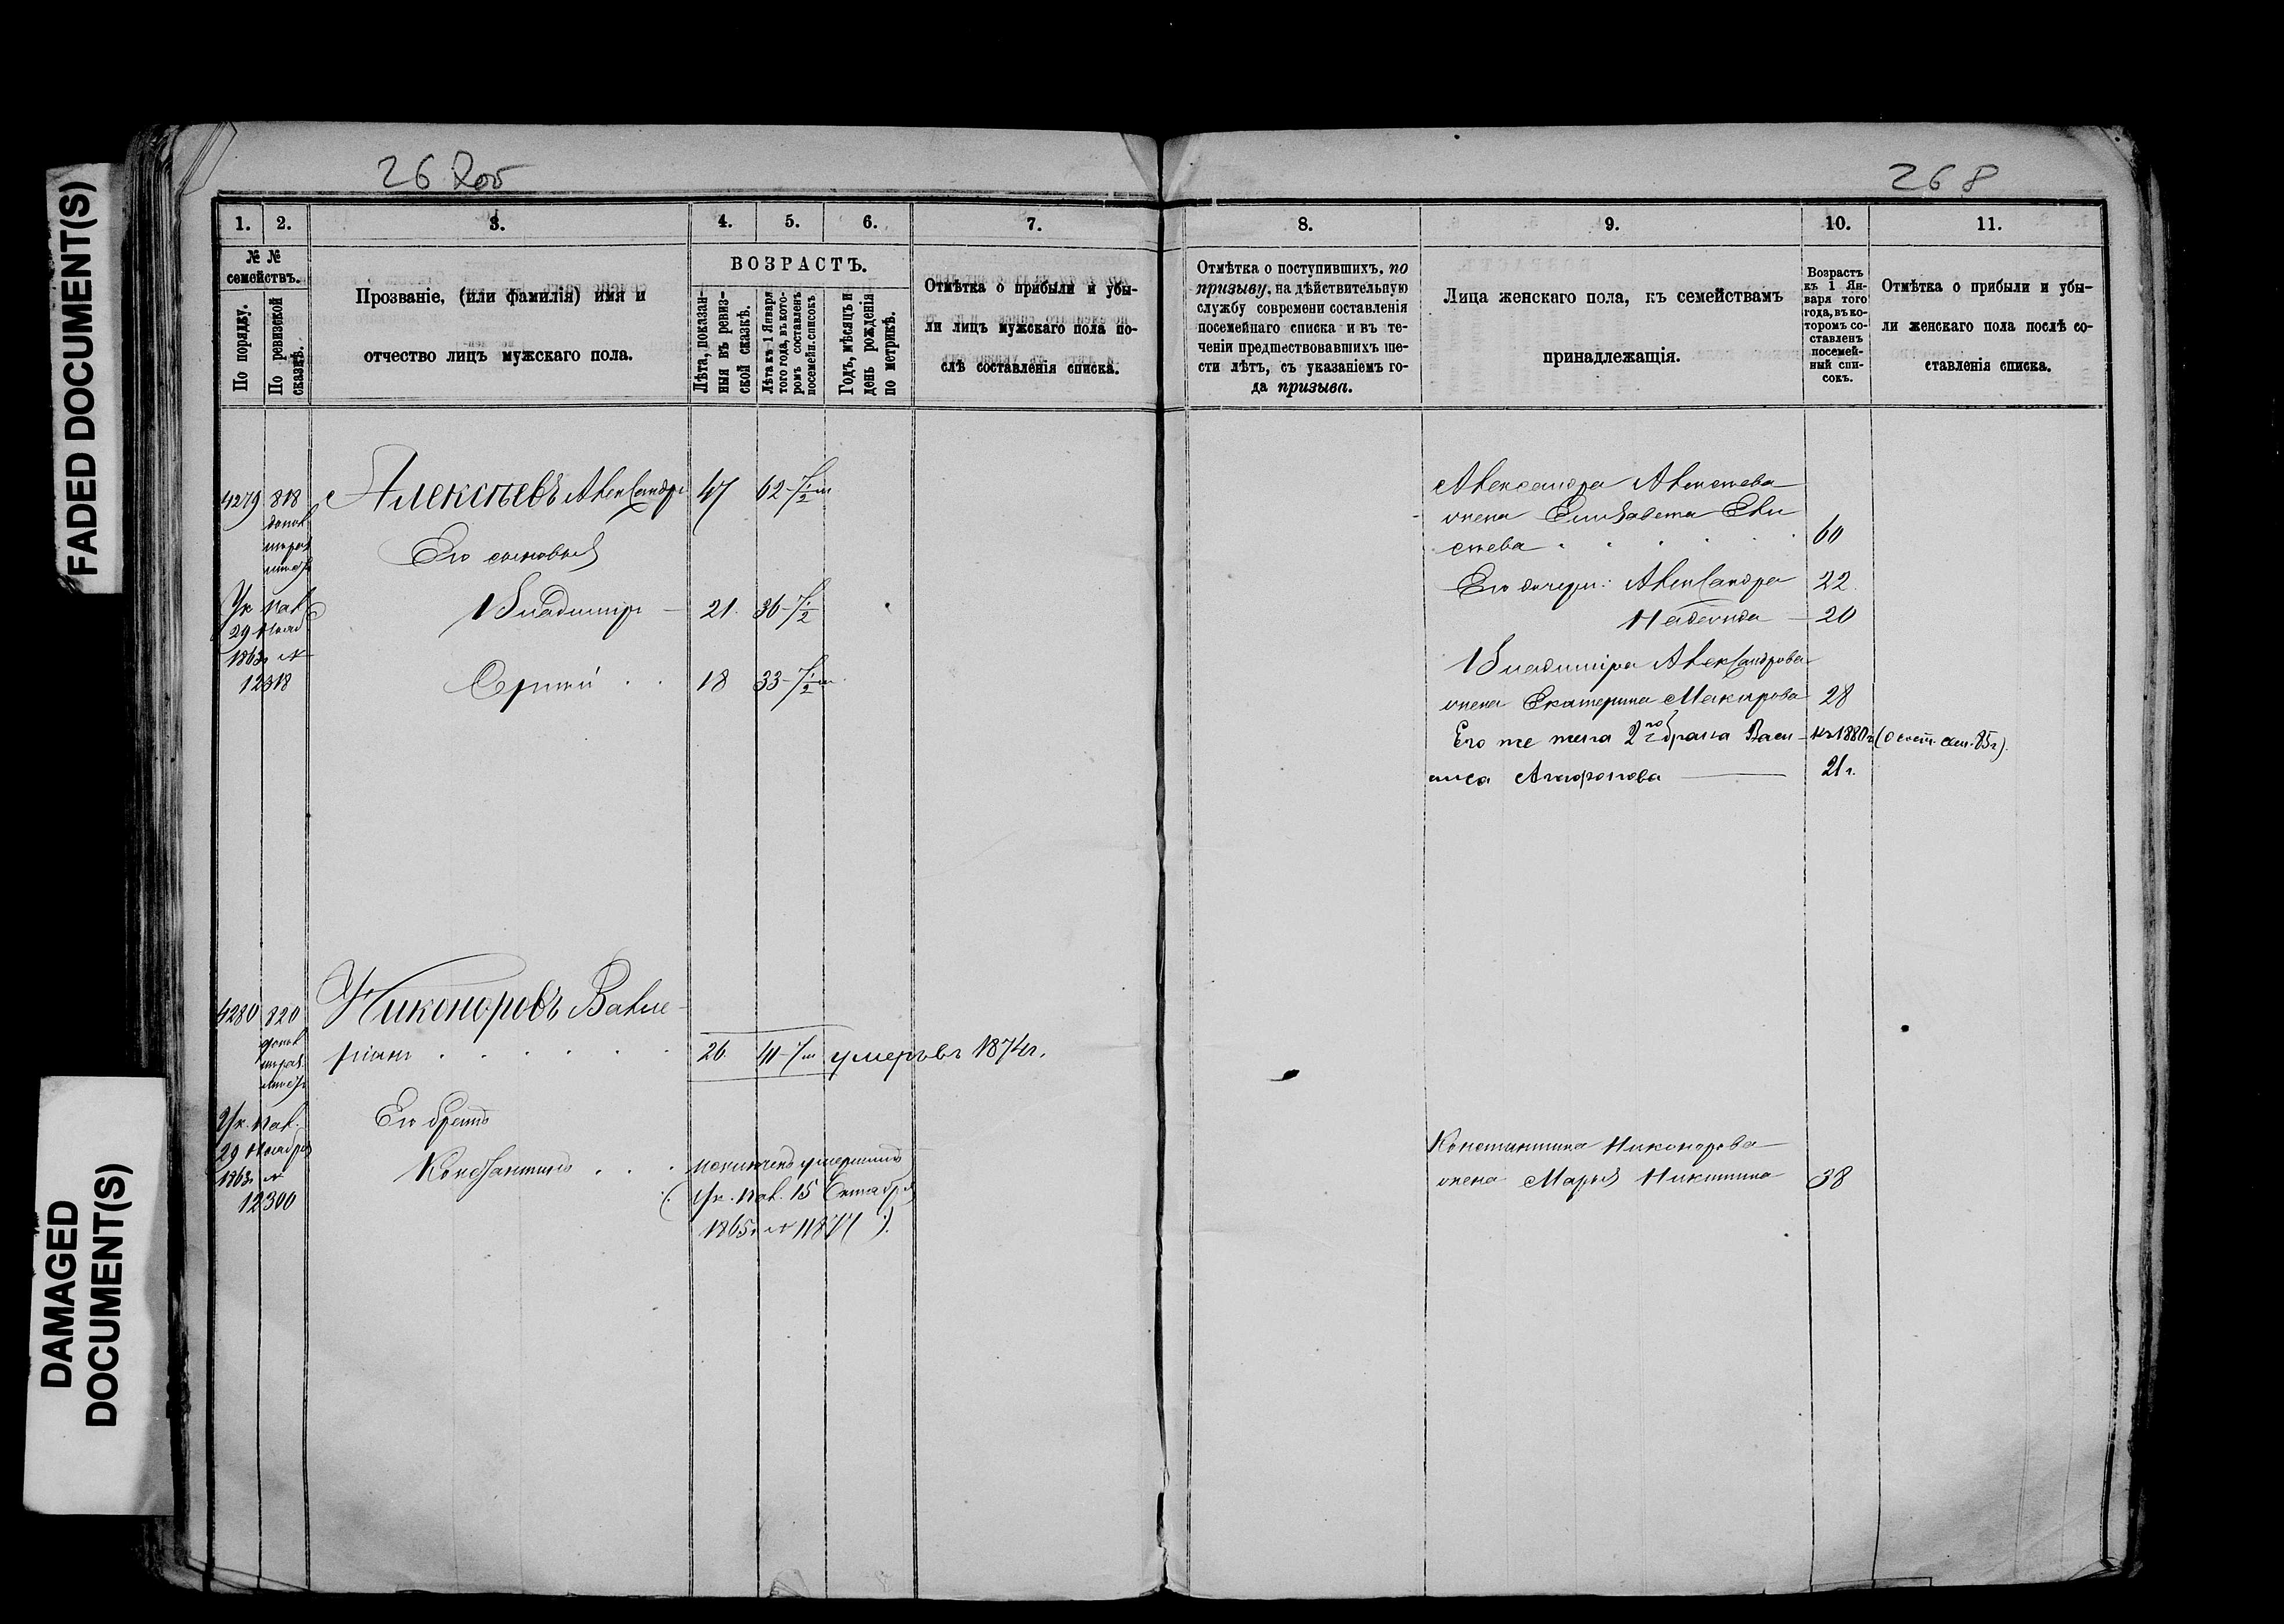 FADED DOCUMENT(S)
DAMAGED
DOCUMENT(S)
268
1.
2.
3.
4.
5.
6.
7.
№ №
семействъ.
По порядку.
По ревизской
сказкѣ.
Прозваніе, (или фамилія) имя и
отчество лицъ мужскаго пола.
ВОЗРАСТЪ.
Лѣта, показан-
ныя въ ревиз-
ской сказкѣ.
Лѣта къ 1 Января
того года, въ кото-
ромъ составленъ
посемейн. списокъ
Годъ, мѣсяцъ и
день рожденія
по метрикѣ.
Отмѣтка о прибыли и убы-
ли лицъ мужскаго пола по-
слѣ составленія списка.
4279 818 Алексѣевъ Александръ 47 62-7½
Его сыновья
Владиміръ 21 36-7½
29
1863
12318
Сергѣй 18 33-7½
4280 820 Никоноровъ Вале-
ріанъ 26 41-7 умеръ въ 1874г.
Ук. Пал.
29 Ноября
1863
12300
Его братъ
Константинъ исключенъ умершимъ
(Ук. Пал. 15 Октября
1865г. №
8.
9.
10.
11.
Отмѣтка о поступившихъ, по
призыву, на дѣйствительную
службу современи составленія
посемейнаго списка и въ те-
ченіи предшествовавшихъ ше-
сти лѣтъ, съ указаніемъ го-
да призыва.
Лица женскаго пола, къ семействамъ
принадлежащія.
Возрастъ
къ 1 Ян-
варя того
года, въ ко-
торомъ со-
ставленъ
посемей-
ный спи-
сокъ.
Отмѣтка о прибыли и убы-
ли женскаго пола послѣ со-
ставленія списка.
Александра Алексѣева
жена Елизавета Ели
сѣева 60
Его дочери: Александра 22
Надежда 20
Владиміра Александрова
жена Екатерина Макарова 28
Его же жена 2го брака Васи- къ 1880г.
лиса 21г.
Константина Никонорова
жена Марья Никитина 38